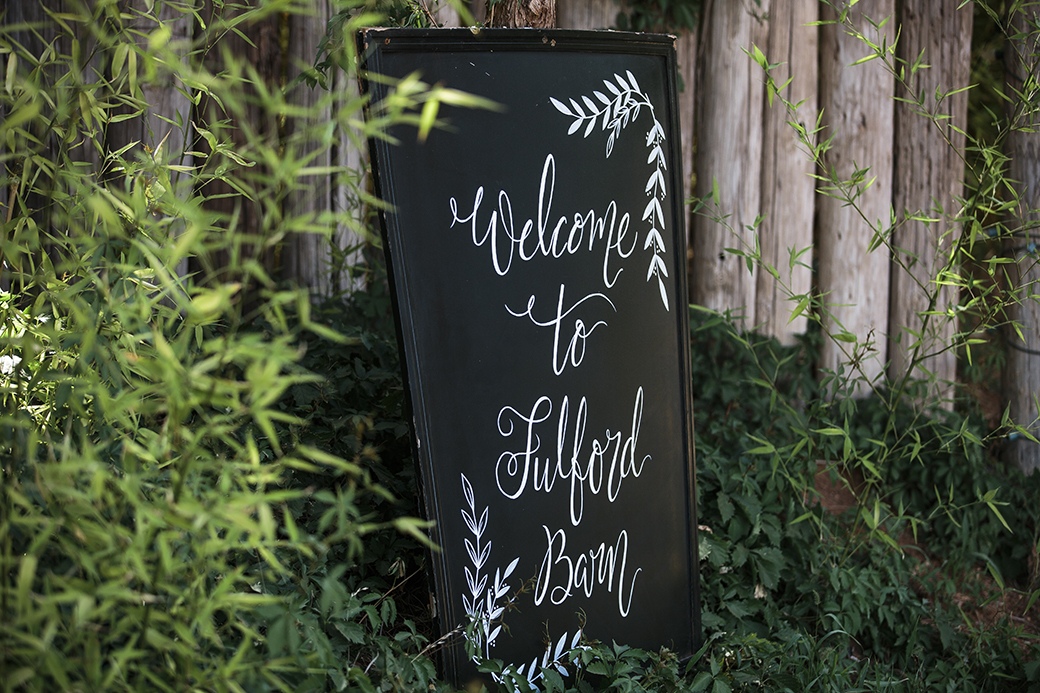 Welcome
to
Fulford
Barn